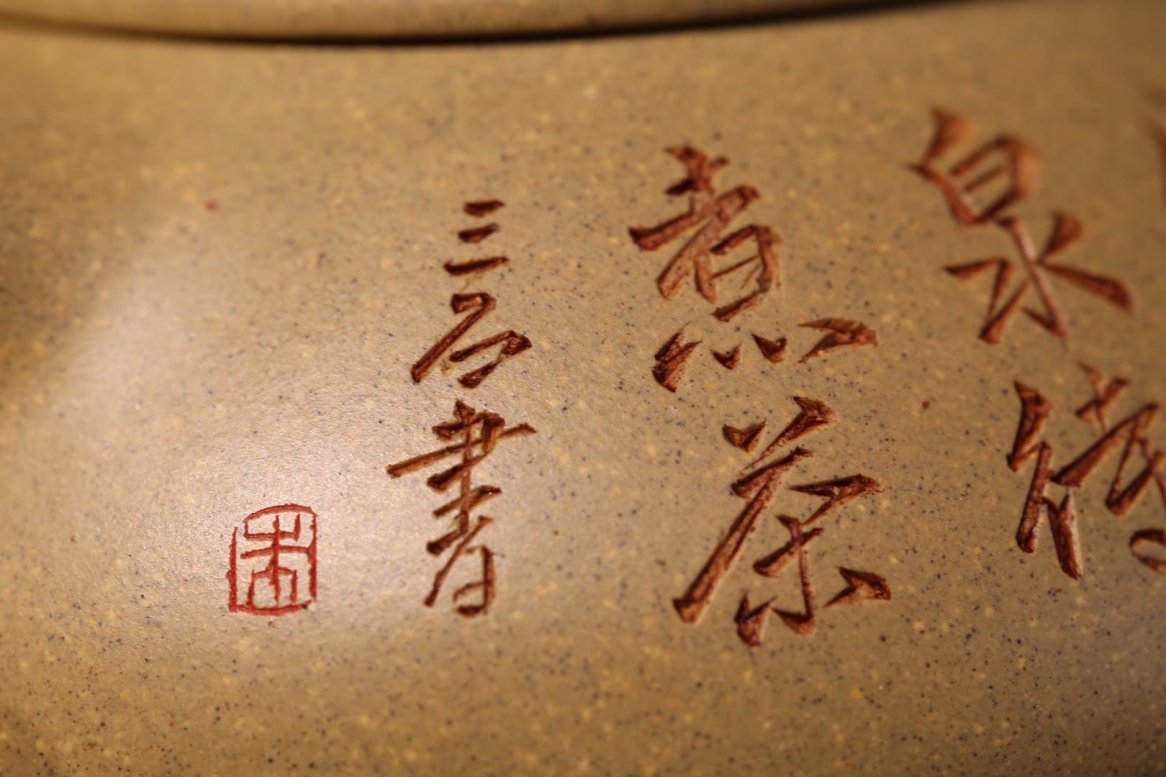 泉
煮茶
三石書